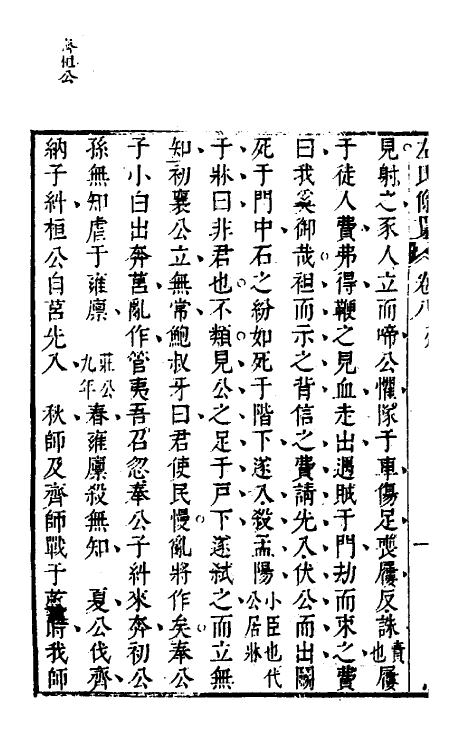 卷八
一
見射之豕人立而啼公懼隊于車傷足喪屨反誅責也屨
于徒人費弗得鞭之見血走出遇賊于門劫而束之費
曰我奚御哉袒而示之背信之費請先入伏公而出鬭
死于門中石之紛如死于階下遂入殺孟陽小臣也代公居牀
于牀曰非君也不類見公之足于戶下遂弒之而立無
知初襄公立無常鮑叔牙曰君使民慢亂將作矣奉公
子小白出奔莒亂作管夷吾召忽奉公子糾來奔初公
孫無知虐于雍廩 莊公九年春雍廩殺無知 夏公伐齊
納子糾桓公自莒先入 秋師及齊師戰于乾時我師
齊桓公